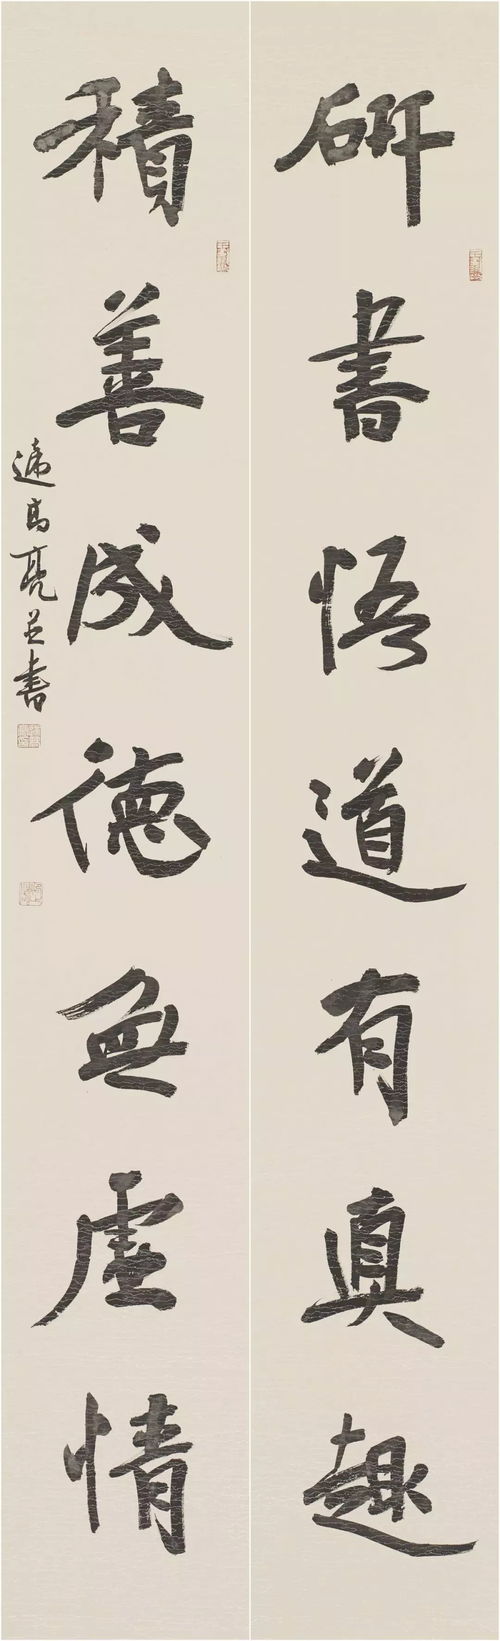 研書悟道有真趣
積善成德無虛情
高亮並書